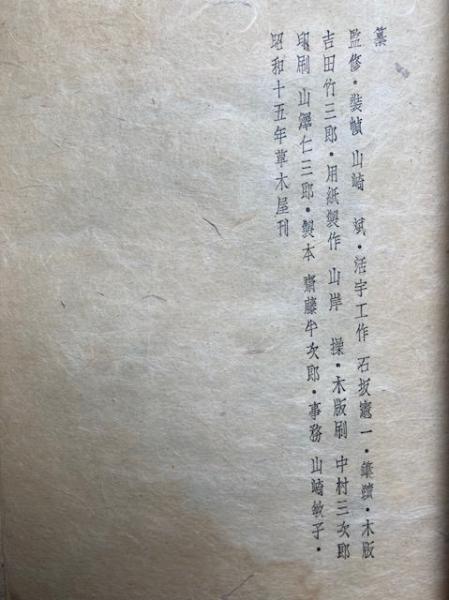 纂
監修・装幀 山崎 斌・活字工作 石坂憲一・筆蹟・木版
吉田竹三郎・用紙製作 山岸 操・木版刷 中村三次郎
印刷 山澤仁三郎・製本 齋藤牛次郎・事務 山崎敏子・
昭和十五年草木屋刊